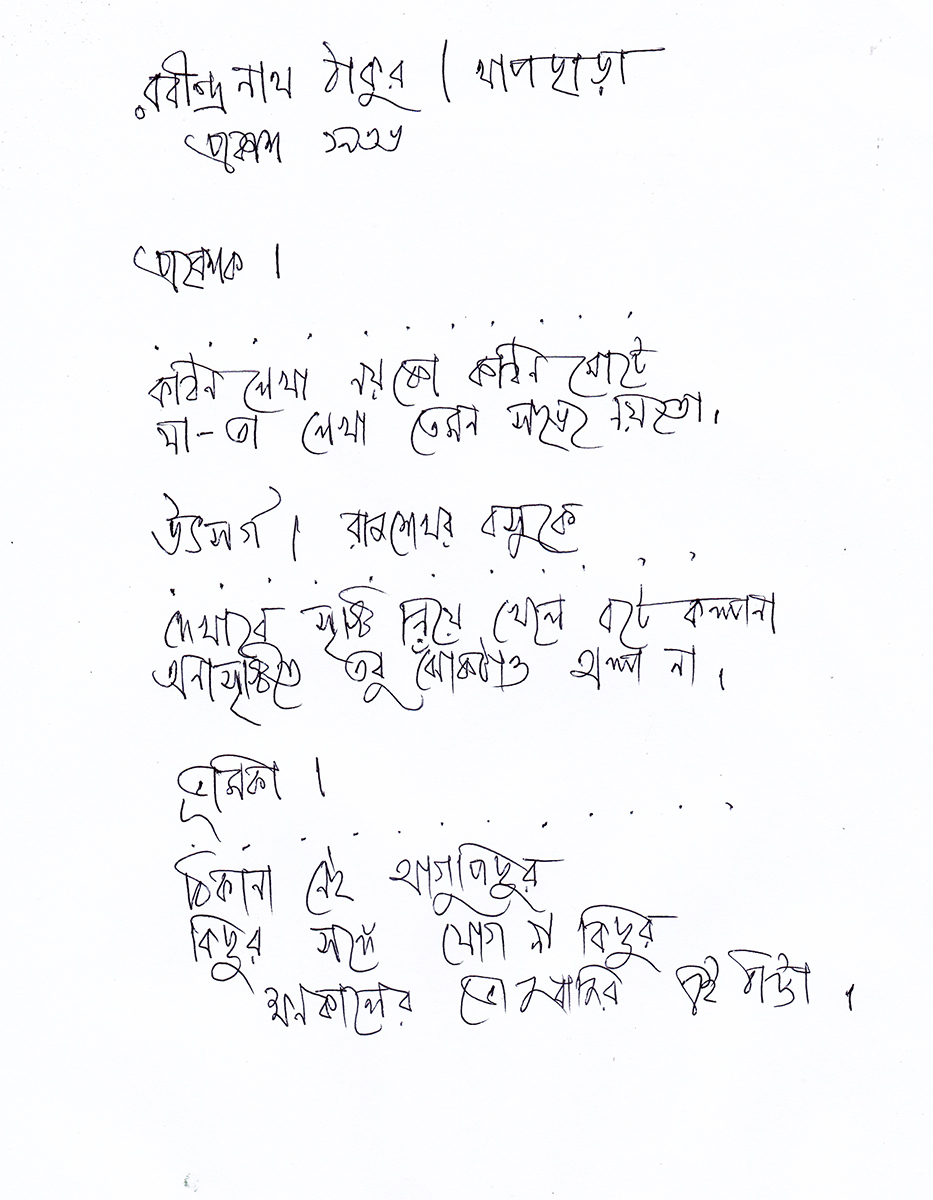 রবীন্দ্রনাথ ঠাকুর | খাপছাড়া
প্রকাশ ১৯৩৬
প্রবেশক |
. . . . . . . . . . .
কঠিন লেখা নয়কো কঠিন মোটে
যা-তা লেখা তেমন সহজ নয়তো।
উৎসর্গ | রাজশেখর বসুকে
. . . . . . . . . . . .
দেখারে সৃষ্টি নিয়ে খেলে বটে কল্পনা
অনাসৃষ্টিতে তবু ঝোঁকটাও অল্প না।
ভূমিকা |
. . . . . . . . . . .
ঠিকানা নেই আগুপিছুর
কিছুর সঙ্গে যোগ না কিছুর
ক্ষণকালের ভোজবাজির এই ঠাট্টা।